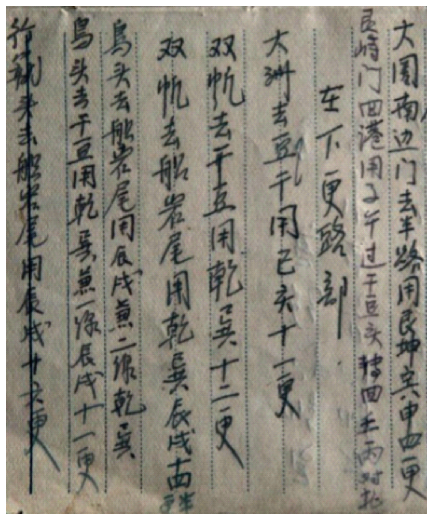 大圈南边门去半路用艮坤寅申四更
良崎门回港用子午过干豆头转回壬丙对扯
在下更路部
大洲去豆干用巳亥十一更
双帆去干豆用乾巽十二更
双帆去船岩尾用乾巽辰戌十四更
鸟头去船岩尾用辰戌兼二线乾巽
鸟头去干豆用乾巽兼一线辰戌十一更
头去船岩尾用辰戌廿六更